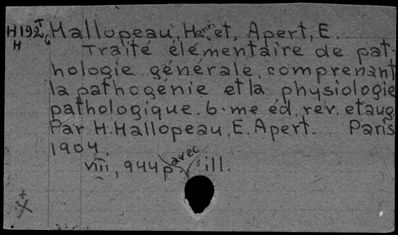 H192T6 Hallopeau, Henri et, Apert, E.
H Traité élémentaire de pat-
hologie générale, comprenant
la pathogénie et la physiologie
pathologique. 6.me éd. rev. et aug.
Par H. Hallopeau, E. Apert. Paris
1904.
viii, 944 p. avec ill.